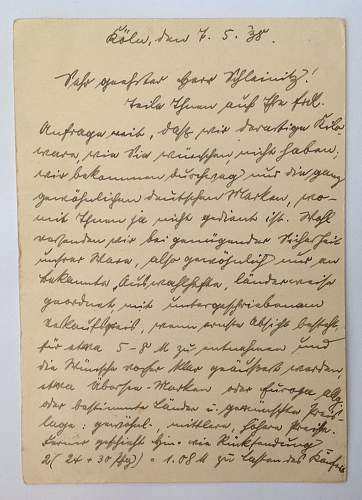 Köln, den 7. 5. 38.
Sehr geehrter Herr Schleinitz!
teile Ihnen auf Ihre frdl.
Anfrage mit, daß wir derartige Kilo-
ware, wie Sie wünschen nicht haben,
wir bekommen durchweg nur die ganz
gewöhnlichen deutschen Marken, wo-
mit Ihnen ja nicht gedient ist. Wohl
versenden wir bei genügender Sicherheit
unsrer Ware, also gewöhnlich nur an
bekannte, Auswahlhefte, länderweise
geordnet mit untergeschriebenem
Verkaufspreis, wenn ernste Absicht besteht,
für etwa 5-8 M zu entnehmen und
die Wünsche vorher klar geäußert werden,
etwa Übersee-Marken oder Europa allg.
oder bestimmte Länder u. gewünschte Preis-
lage: gewöhnl., mittlere, höhere Preise.
Ferner geschieht Hin- wie Rücksendung
2(24+30 Pfg) = 1.08 M zu Lasten des Käufers